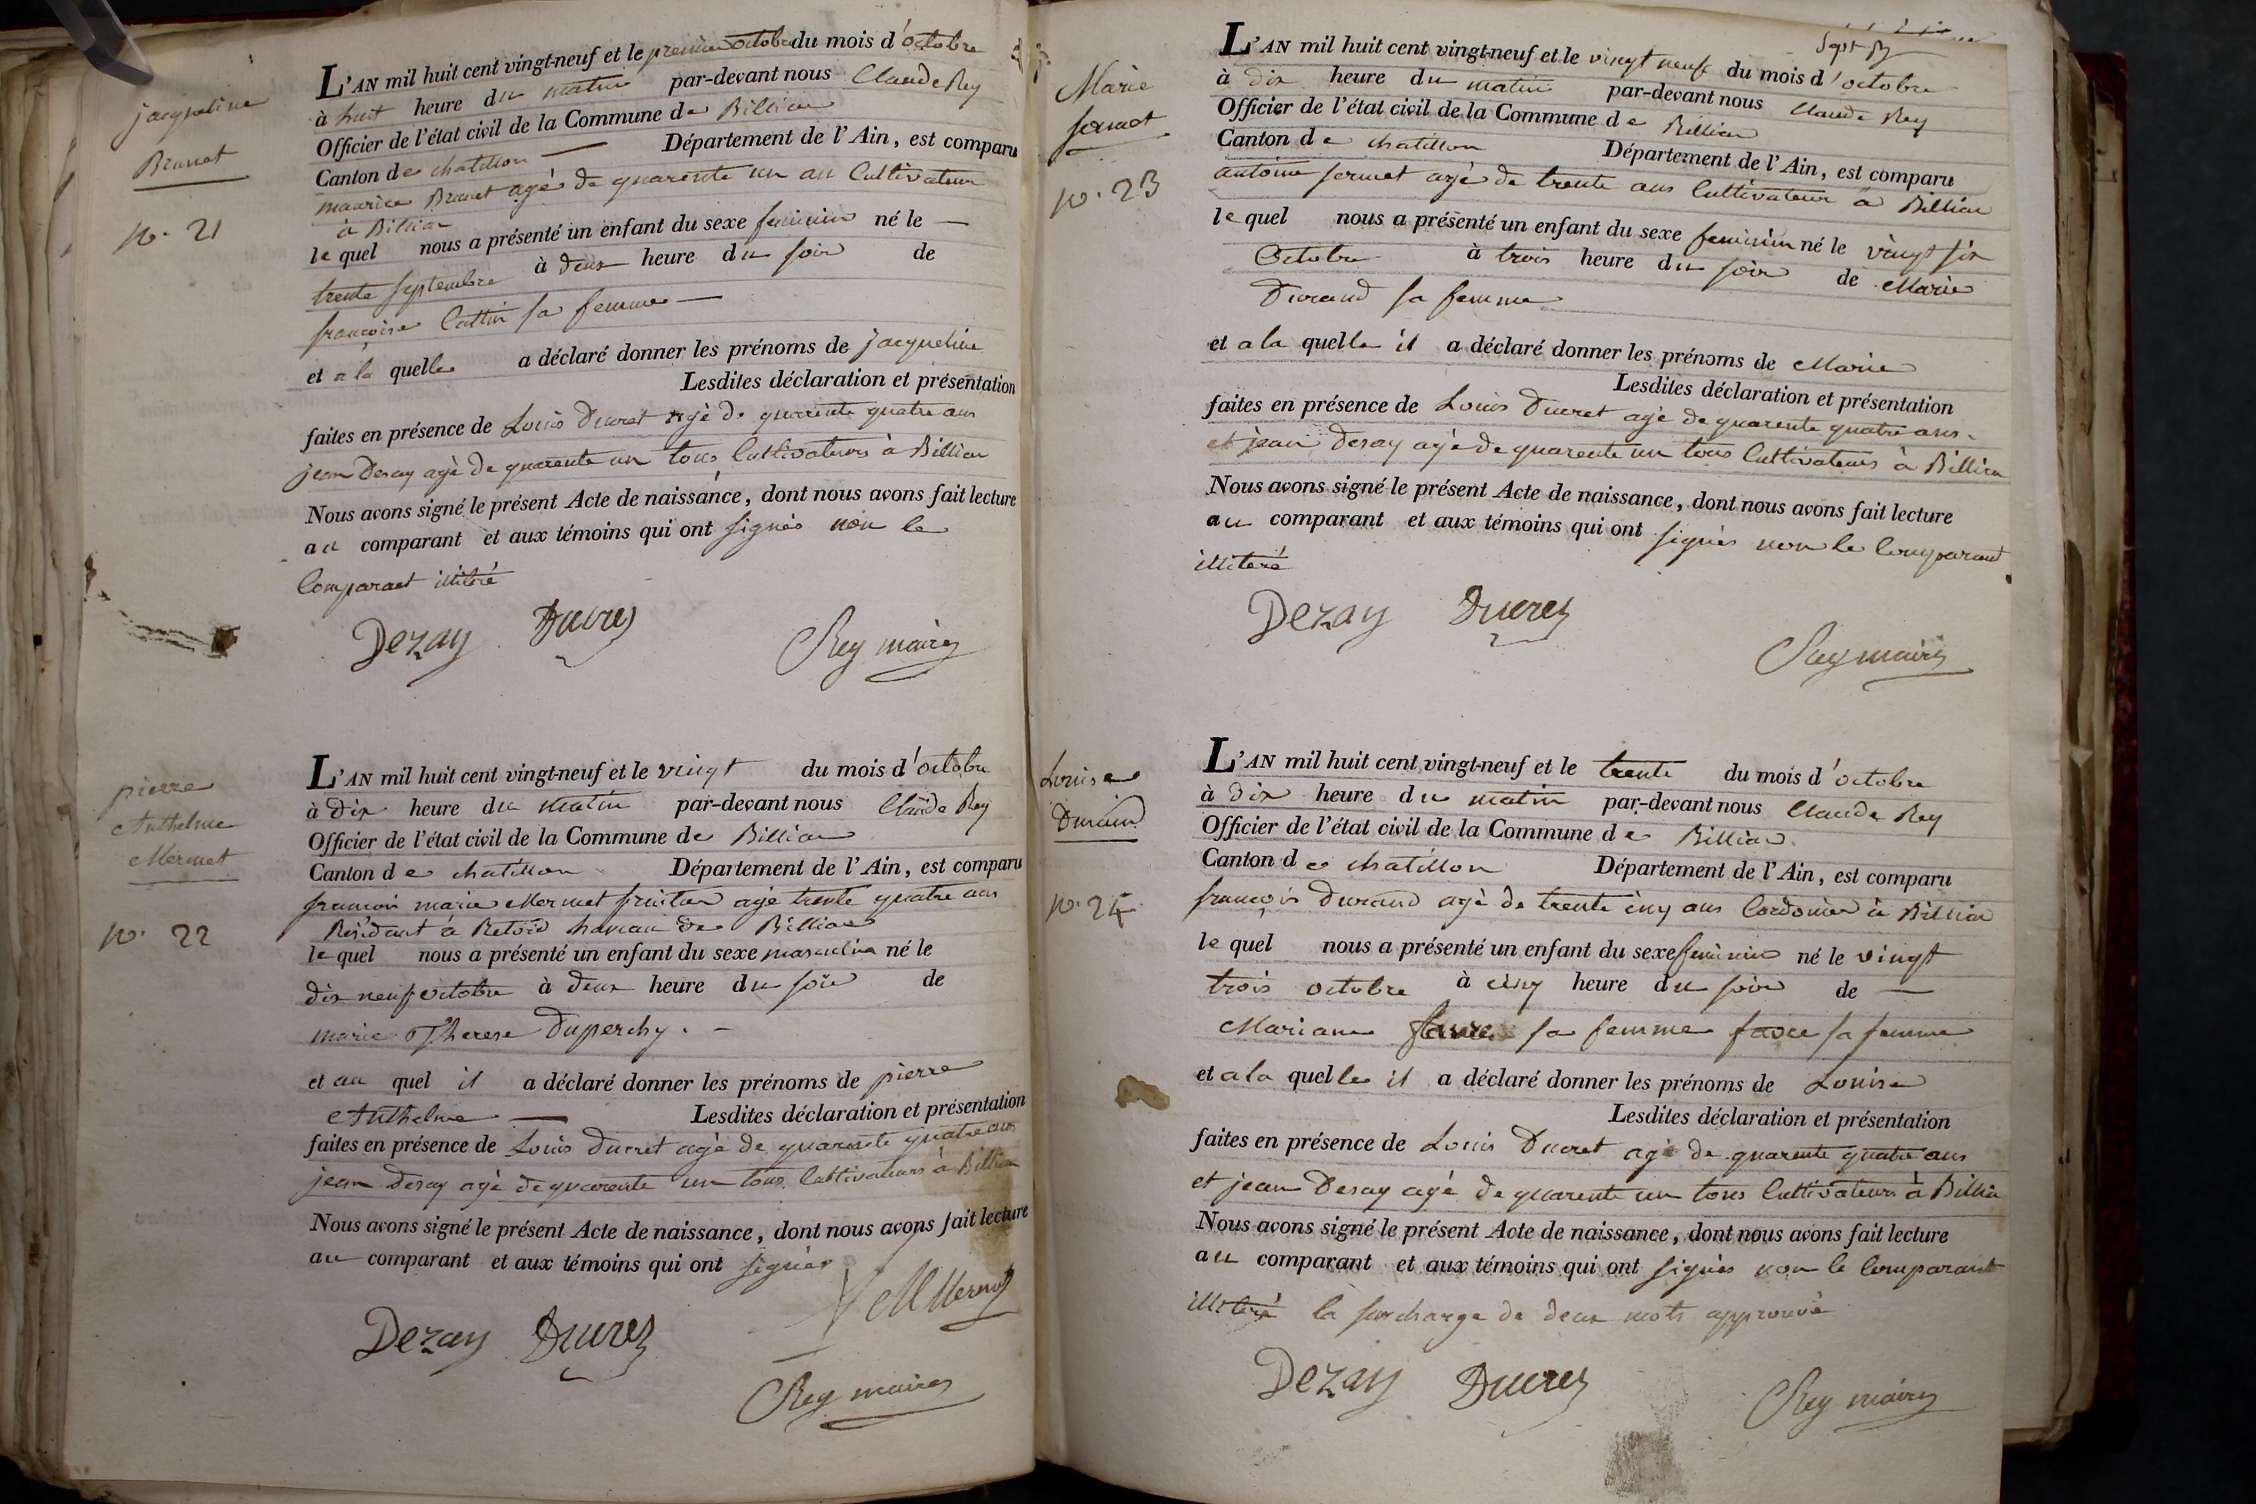 jacqueline
Brunet
no. 21
L'AN mil huit cent vingt-neuf et le premier octobre du mois d'octobre
à huit heure du matin par-devant nous Claude Rey
Officier de l'état civil de la Commune de Billiau
Canton de chatillon — Département de l'Ain, est comparu
maurice Brunet agé de quarente un an Cultivateur
à Billiau
le quel nous a présenté un enfant du sexe feminin né le —
trente septembre à deux heure du soir de
françoise Cattin sa femme —
et a la quelle a déclaré donner les prénoms de jacqueline
Lesdites déclaration et présentation
faites en présence de Louis Ducret agé de quarente quatre ans
jean Desay agé de quarente un tous Cultivateurs à Billiau
Nous avons signé le présent Acte de naissance, dont nous avons fait lecture
au comparant et aux témoins qui ont signés non le
Comparaet illiteré
Dezay Ducret
Rey maire
pierre
Anthelme
Mermet
no. 22
L'AN mil huit cent vingt-neuf et le vingt du mois d'octobre
à dix heure du matin par-devant nous Claude Rey
Officier de l'état civil de la Commune de Billiau
Canton de chatillon Département de l'Ain, est comparu
francois marie Mermet fruitier agé trente quatre ans
Residant à Retord hameau de Billiau
le quel nous a présenté un enfant du sexe masculin né le
dix neuf octobre à deux heure du soir de
marie Therese Duperchy. —
et au quel il a déclaré donner les prénoms de pierre
Anthelme — Lesdites déclaration et présentation
faites en présence de Louis Ducret agé de quarente quatre ans
jean Desay agé de quarente un tous Cultivateurs à Billiau
Nous avons signé le présent Acte de naissance, dont nous avons fait lecture
au comparant et aux témoins qui ont signés
Mermet
Dezay Ducret
Rey maire
Sept
Marie
fermet
no. 23
L'AN mil huit cent vingt-neuf et le vingt neuf du mois d'octobre
à dix heure du matin par-devant nous Claude Rey
Officier de l'état civil de la Commune de Billiau
Canton de chatillon Département de l'Ain, est comparu
antoine fermet agé de trente ans Cultivateur à Billiau
le quel nous a présenté un enfant du sexe feminin né le vingt six
Octobre à trois heure du soir de Marie
Durand sa femme
et a la quelle il a déclaré donner les prénoms de Marie
Lesdites déclaration et présentation
faites en présence de Louis Ducret agé de quarente quatre ans.
et jean Desay agé de quarente un tous Cultivateurs à Billiau
Nous avons signé le présent Acte de naissance, dont nous avons fait lecture
au comparant et aux témoins qui ont signés non le Comparant
illiteré
Dezay Ducret
Rey maire
Louise
Durand
no. 24
L'AN mil huit cent vingt-neuf et le trente du mois d'octobre
à dix heure du matin par-devant nous Claude Rey
Officier de l'état civil de la Commune de Billiau
Canton de chatillon Département de l'Ain, est comparu
françois Durand agé de trente cinq ans Cordonier à Billiau
le quel nous a présenté un enfant du sexe feminin né le vingt
trois octobre à cinq heure du soir de —
Mariane favre sa femme favre sa femme
et a la quelle il a déclaré donner les prénoms de Louise
Lesdites déclaration et présentation
faites en présence de Louis Ducret agé de quarente quatre ans
et jean Desay agé de quarente un tous Cultivateurs à Billiau
Nous avons signé le présent Acte de naissance, dont nous avons fait lecture
au comparant et aux témoins qui ont signés non le Comparant
illiteré la surcharge de deux mots approuvé
Dezay Ducret
Rey maire